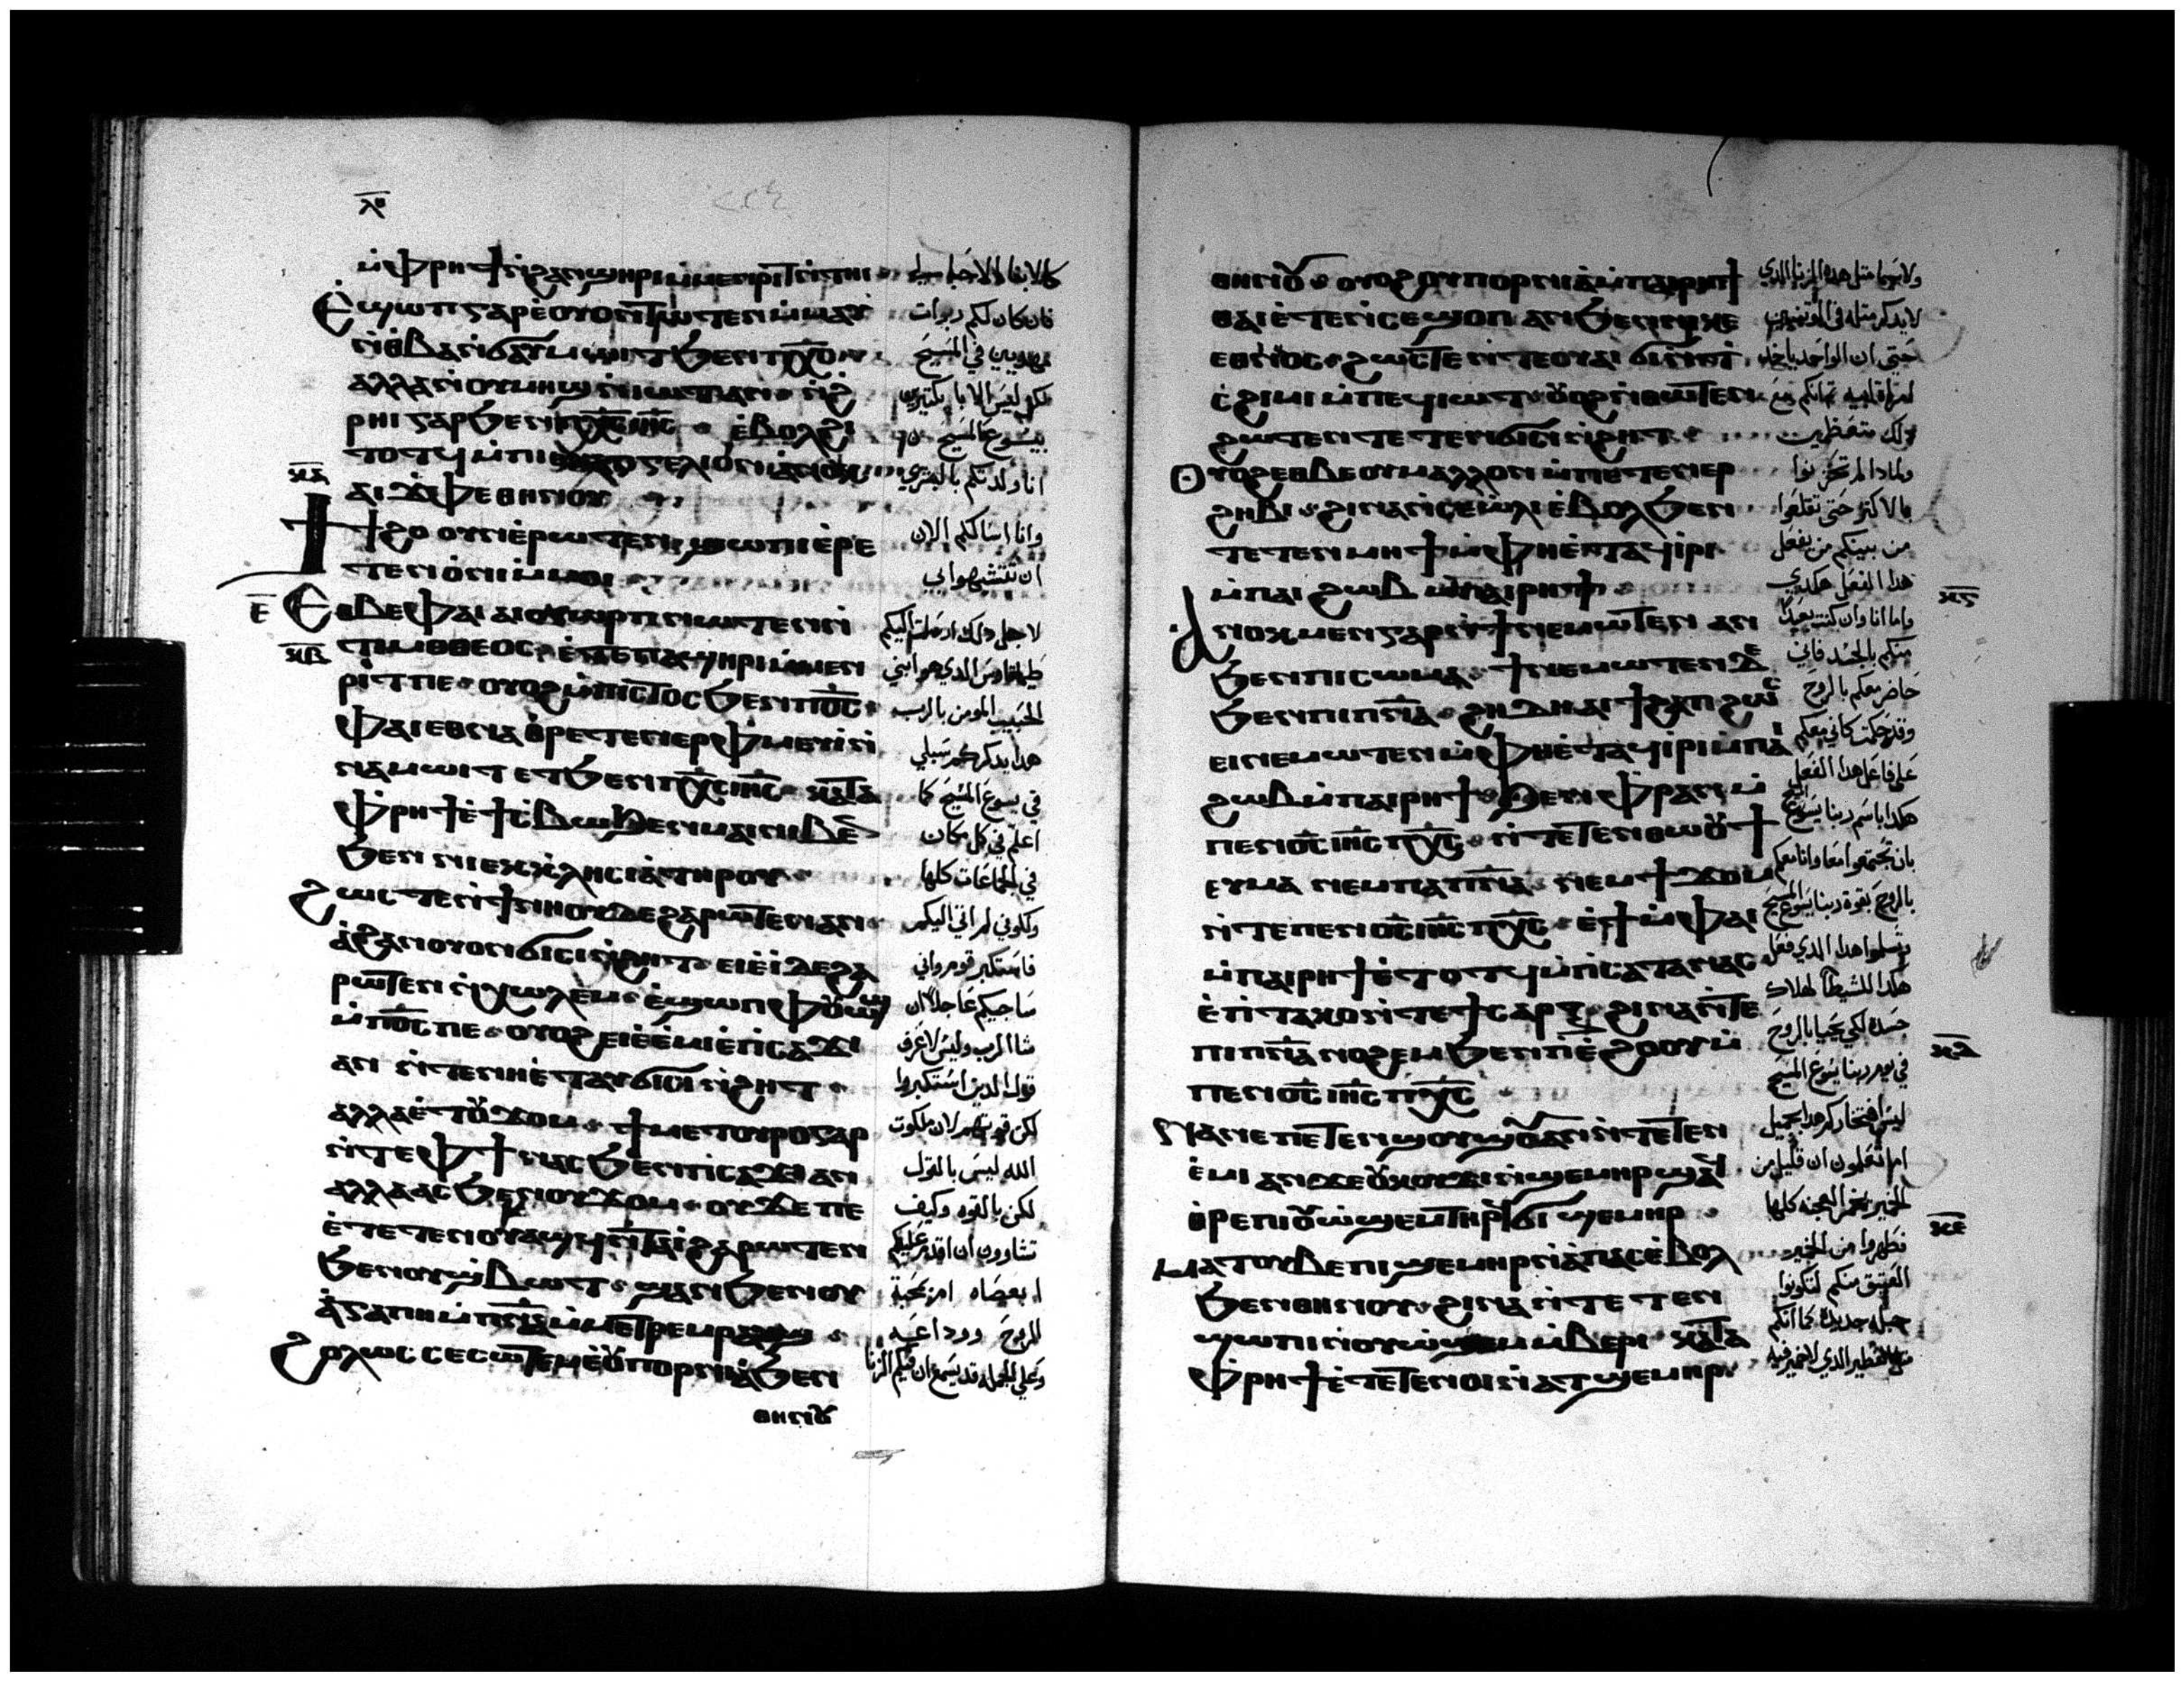 ⲗ̅
ⲙ̀ⲫⲣⲏϯ ⲛ̀ϩⲁⲛϣⲏⲣⲓ ⲙ̀ⲙⲉⲛⲣⲓϯ
Ⲉ̀ϣⲱⲡ ⲅⲁⲣ ⲉ̀ⲟⲩⲟⲛⲧⲱⲧⲉⲛ ⲙ̀ⲙⲁⲩ
ⲛ̀ⲑⲃⲁ ⲛ̀ϭⲁⲩⲙⲱⲓⲧ ϧⲉⲛ ⲡⲭ̅ⲥ̅
ⲁⲗⲗⲁ ⲛⲟⲩⲙⲏϣ ⲛ̀ⲓⲱⲧ ⲁⲛ ⲛ̀ϩ
ⲣⲏⲓ ⲅⲁⲣ ϧⲉⲛ ⲡⲭ̅ⲥ̅ ⲓⲏ̅ⲥ̅ ⲉ̀ⲃⲟⲗϩⲓ
ⲧⲟⲧϥ ⲙ̀ⲡⲓⲉⲩⲁⲅⲅⲉⲗⲓⲟⲛ ⲁ̀ⲛⲟⲕ
ⲕ̅ⲁ̅
ⲁⲓϫⲫⲉ ⲑⲏⲛⲟⲩ
Ϯϯϩⲟ ⲟⲩⲛ ⲉ̀ⲣⲱⲧⲉⲛ ϣⲱⲡⲓ ⲉ̀ⲣⲉ
ⲧⲉⲛⲟ̀ⲛⲓ ⲙ̀ⲙⲟⲓ
ⲉ̅
Ⲉⲑⲃⲉ ⲫⲁⲓ ⲁⲓⲟⲩⲱⲣⲡ ⲛⲱⲧⲉⲛ ⲛ
ⲕ̅ⲃ̅
ⲧⲓⲙⲟⲑⲉⲟⲥ ⲉ̀ⲧⲉ ⲡⲁϣⲏⲣⲓ ⲙ̀ⲙⲉⲛ
ⲣⲓⲧ ⲡⲉ ⲟⲩⲟϩ ⲙ̀ⲡⲓⲥⲧⲟⲥ ϧⲉⲛ ⲡⲟ̅ⲥ̅
ⲫⲁⲓ ⲉⲑⲛⲁⲑ̀ⲣⲉⲧⲉⲛⲉⲣⲫⲙⲉⲩⲓ ⲛ̀
ⲛⲁⲙⲱⲓⲧ ⲉⲧϧⲉⲛ ⲡⲭ̅ⲥ̅ ⲓⲏ̅ⲥ̅ ⲕⲁⲧⲁ
ⲫ̀ⲣⲏϯ ⲉ̀ϯϯⲥ̀ⲃⲱ ϧⲉⲛ ⲙⲁⲓ ⲛⲓⲃⲉⲛ
ϧⲉⲛ ⲛⲓⲉⲕⲕⲗⲏⲥⲓⲁ̀ ⲧⲏⲣⲟⲩ
Ϩⲱⲥ ⲧⲉ ⲛ̀ϯⲛⲏⲟⲩ ⲇⲉ ϩⲁⲣⲱⲧⲉⲛ ⲁⲛ
ⲁ̀ϩⲁⲛⲟⲩⲟⲛ ϭⲓⲥⲓ ⲛ̀ϩⲏⲧ ⲉⲓⲉ̀ⲓ̀ ⲇⲉ ϩⲁ
ⲣⲱⲧⲉⲛ ⲛ̀ⲭⲱⲗⲉⲙ ⲉ̀ϣⲱⲡ ⲫⲟⲩⲱϣ
ⲙ̀ⲡⲟ̅ⲥ̅ ⲡⲉ ⲟⲩⲟϩ ⲉⲓⲉ̀ⲉ̀ⲙⲓ ⲉ̀ⲡⲓⲥⲁϫⲓ
ⲁⲛ ⲛ̀ⲧⲉ ⲛⲏⲉ̀ⲧⲁⲩϭⲓⲥⲓ ⲛ̀ϩⲏⲧ
ⲁⲗⲗⲁ ⲉ̀ⲧⲟⲩϫⲟⲙ ϯⲙⲉⲧⲟⲩⲣⲟ ⲅⲁⲣ
ⲛ̀ⲧⲉ ⲫϯ ⲛⲁⲥ ϧⲉⲛ ⲡⲓⲥⲁϫⲓ ⲁⲛ
ⲁⲗⲗⲁ ⲁⲥ ϧⲉⲛ ⲟⲩϫⲟⲙ ⲟⲩ ϫⲉ ⲡⲉ
ⲉ̀ⲧⲉⲧⲉⲛⲟⲩⲁϣϥ ⲛ̀ⲧⲁⲓ̀ ϩⲁⲣⲱⲧⲉⲛ
ϧⲉⲛ ⲟⲩϣ̀ⲃⲱⲧ ϣⲁⲛ ϧⲉⲛ ⲟⲩ
ⲁ̀ⲅⲁⲡⲏ ⲙ̀ⲡⲛ̅ⲁ̅ ⲙ̀ⲙⲉⲧⲣⲉⲙⲣⲁⲩϣ
Ϩⲟⲗⲱⲥ ⲥⲉⲥⲱⲧⲉⲙ ⲉ̀ⲟⲩⲡⲟⲣⲛⲓⲁ̀ ϧⲉⲛ
ⲑⲏⲛⲟⲩ
فان كان لكم ربوات
في المسيح
بيسوع المسيح
انا ولدتكم بالبشري
وانا اسالكم الان
ان تتشبهوا بي
لاجل دلك ارسلت اليكم
طيماتاوس الدي هو ابني
الحبيب المومن بالرب
هدا يدكركم سبلي
في يسوع المسيح كما
اعلم في كل مكان
في الجماعات كلها
وكاني لم اتي اليكم
فاستكبر قوم واني
ساجيكم عاجلا ان
شا الرب وليس لاعرف
قول الدين استكبروا
لكن قوتهم لان ملكوت
الله ليس بالقول
لكن بالقوه وكيف
تشاوون ان اقدم عليكم
ابعصاه ام بمحبة
الروح ووداعه
وعلي الجمله قد يسمع ان فيكم الزنا
ⲑⲏⲛⲟⲩ ⲟⲩⲟϩ ⲟⲩⲡⲟⲣⲛⲓⲁ̀ ⲙ̀ⲡⲁⲓⲣⲏϯ
ⲑⲁⲓ ⲉ̀ⲧⲉⲛ̀ⲥⲉϣⲟⲡ ⲁⲛ ϧⲉⲛ ⲛⲓⲕⲉ
ⲉⲑⲛⲟⲥ ϩⲱⲥⲧⲉ ⲛ̀ⲧⲉ ⲟⲩⲁⲓ ϭⲓ ⲛ̀ⲧ
ⲥ̀ϩⲓⲙⲓ ⲙ̀ⲡⲉϥⲓⲱⲧ ⲟⲩⲟϩ ⲛ̀ⲑⲱⲧⲉⲛ
ϩⲱⲧⲉⲛ ⲧⲉⲧⲉⲛϭⲓⲥⲓ ⲛ̀ϩⲏⲧ
Ⲟⲩⲟϩ ⲉⲑⲃⲉ ⲟⲩ ⲙⲁⲗⲗⲟⲛ ⲙ̀ⲡⲉⲧⲉⲛⲉⲣ
ϩⲏⲃⲓ ϩⲓⲛⲁ ⲛ̀ⲥⲉⲱ̀ⲗⲓ ⲉ̀ⲃⲟⲗ ϧⲉⲛ
ⲧⲉⲧⲉⲛⲙⲏϯ ⲙ̀ⲫⲏⲉ̀ⲧⲁϥⲓⲣⲓ
ⲙ̀ⲡⲁⲓ ϩⲱⲃ ⲙ̀ⲡⲁⲓⲣⲏϯ
Ⲁⲛⲟⲕ ⲙⲉⲛ ⲅⲁⲣ ⲛ̀ϯ ⲛⲉⲙⲱⲧⲉⲛ ⲁⲛ
ϧⲉⲛ ⲡⲓⲥⲱⲙⲁ ϯⲛⲉⲙⲱⲧⲉⲛ ⲇⲉ
ϧⲉⲛ ⲡⲓⲡⲛ̅ⲁ̅ ϩⲏⲇⲏ ⲁⲓϯϩⲁⲡ ϩⲱⲥ
ⲉⲓⲛⲉⲙⲱⲧⲉⲛ ⲙ̀ⲫⲏⲉ̀ⲧⲁϥⲓⲣⲓ ⲙ̀ⲡⲁⲓ
ϩⲱⲃ ⲙ̀ⲡⲁⲓⲣⲏϯ ϧⲉⲛ ⲫⲣⲁⲛ ⲙ̀
ⲡⲉⲛⲟ̅ⲥ̅ ⲓⲏ̅ⲥ̅ ⲡⲭ̅ⲥ̅ ⲛ̀ⲧⲉⲧⲉⲛⲑⲱⲟⲩϯ
ⲉⲩⲙⲁ ⲛⲉⲙ ⲡⲁⲡⲛ̅ⲁ̅ ⲛⲉⲙ ϯϫⲟⲙ
ⲛ̀ⲧⲉ ⲡⲉⲛⲟ̅ⲥ̅ ⲓⲏ̅ⲥ̅ ⲡⲭ̅ⲥ̅ ⲉ̀ϯ ⲙ̀ⲫⲁⲓ
ⲙ̀ⲡⲁⲓⲣⲏϯ ⲉ̀ⲧⲟⲧϥ ⲙ̀ⲡⲥⲁⲧⲁⲛⲁⲥ
ⲉ̀ⲡ̀ⲧⲁⲕⲟ ⲛ̀ⲧⲉ ϯⲥⲁⲣⲝ ϩⲓⲛⲁ ⲛ̀ⲧⲉ
ⲡⲓⲡⲛ̅ⲁ̅ ⲛⲟϩⲉⲙ ϧⲉⲛ ⲡⲓⲉ̀ϩⲟⲟⲩ ⲙ̀
ⲡⲉⲛⲟ̅ⲥ̅ ⲓⲏ̅ⲥ̅ ⲡⲭ̅ⲥ̅
Ⲛⲁⲛⲉ ⲡⲉⲧⲉⲛϣⲟⲩϣⲟⲩ ⲁⲛ ⲛ̀ⲧⲉⲧⲉⲛ
ⲉ̀ⲙⲓ ⲁⲛ ϫⲉ ⲟⲩⲕⲟⲩϫⲓ ⲛ̀ϣⲉⲙⲏⲣ ϣⲁϥ
ⲑ̀ⲣⲉ ⲡⲓⲟⲩⲱ̀ϣⲉⲙ ⲧⲏⲣϥ ϭⲓ ϣⲉⲙⲏⲣ
Ⲙⲁⲧⲟⲩⲃⲉ ⲡⲓϣⲉⲙⲏⲣ ⲛ̀ⲁ̀ⲡⲁⲥ ⲉ̀ⲃⲟⲗ
ϧⲉⲛ ⲑⲏⲛⲟⲩ ϩⲓⲛⲁ ⲛ̀ⲧⲉⲧⲉⲛ
ϣⲱⲡⲓ ⲛ̀ⲟⲩⲱ̀ϣⲉⲙ ⲙ̀ⲃⲉⲣⲓ ⲕⲁⲧⲁ
ⲫ̀ⲣⲏϯ ⲉ̀ⲧⲉⲧⲉⲛⲟⲓ ⲛ̀ⲁⲧϣⲉⲙⲏⲣ
حتي ان الواحد ياخد
بالاكتر حتي تقلعوا
من بينكم من يفعل
هدا الفعل هكدي
واما انا وان كنت بعيدا
منكم بالجسد فاني
حاضر معكم بالروح
وقد حكمت كاني معكم
علي فاعل هدا الفعل
هكدا باسم ربنا يسوع المسيح
بان تجتمعوا معا وانا معكم
بالروح بقوة ربنا يسوع المسيح
وتسلموا هدا الدي فعل
هكدا للشيطان لهلاك
جسده لكي يحيا بالروح
في يوم ربنا يسوع المسيح
ليس افتخاركم هدا بجميل
اما تعلمون ان قليل من
الخمير يخمر العجنه كلها
فطهروا من الخمير
العتيق منكم لتكونوا
جبله جديده كما انكم
ⲕ̅ⲅ̅
ⲕ̅ⲇ̅
ⲕ̅ⲉ̅